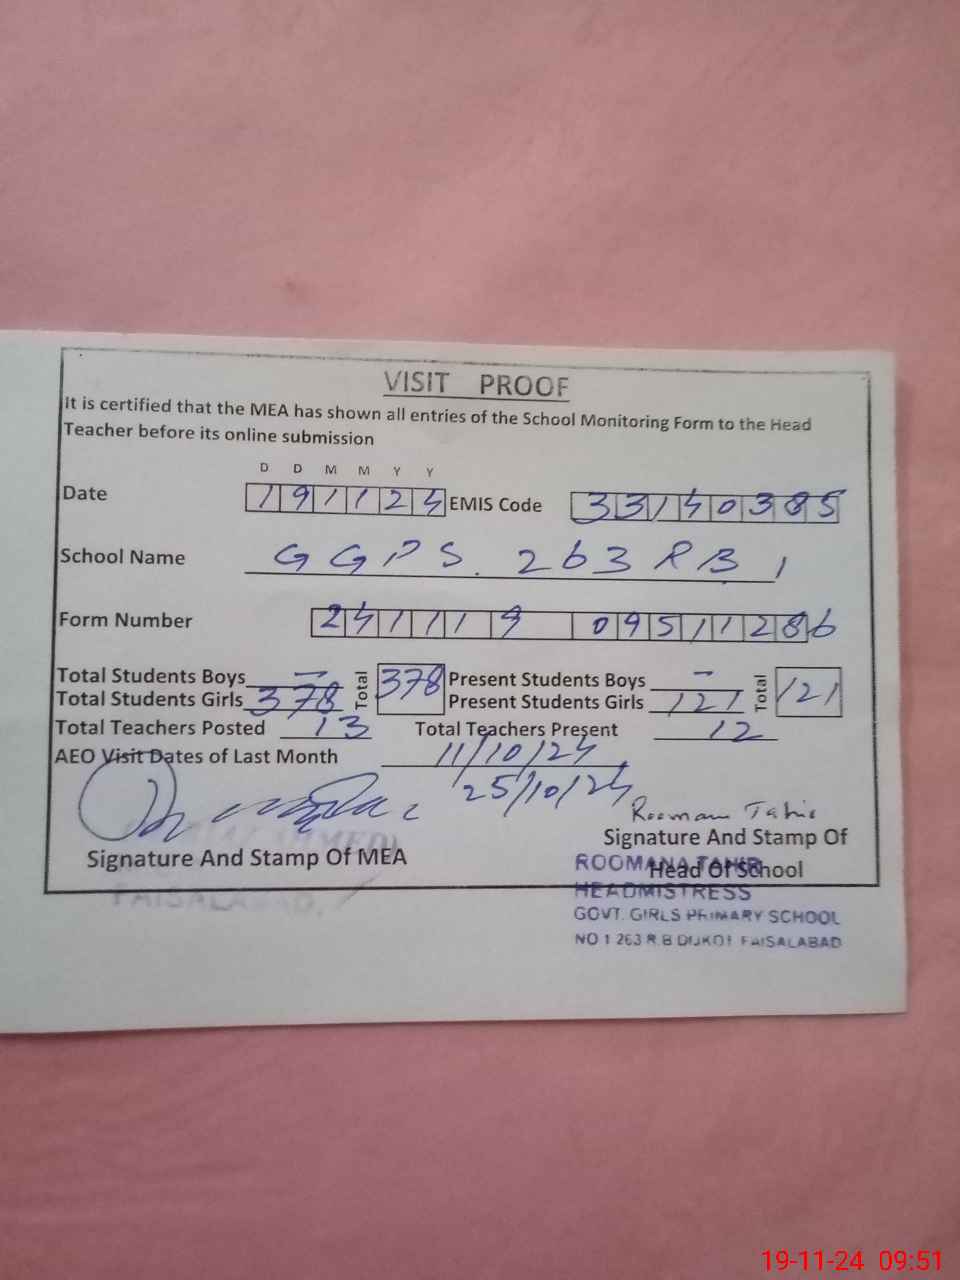 VISIT PROOF
It is certified that the MEA has shown all entries of the School Monitoring Form to the Head
Teacher before its online submission
D D M M Y Y
Date 191124 EMIS Code 33140385
School Name GGPS. 263 RB 1
Form Number 241119 09511286
Total Students Boys — Total 378 Present Students Boys — Total 121
Total Students Girls 378 Present Students Girls 121
Total Teachers Posted 13 Total Teachers Present 12
AEO Visit Dates of Last Month 11/10/24
25/10/24
Signature And Stamp Of MEA
FAISALABAD.
Signature And Stamp Of
Head Of School
ROOMANA TAHIR
HEADMISTRESS
GOVT. GIRLS PRIMARY SCHOOL
NO 1 263 R.B DIJKOT FAISALABAD
19-11-24 09:51